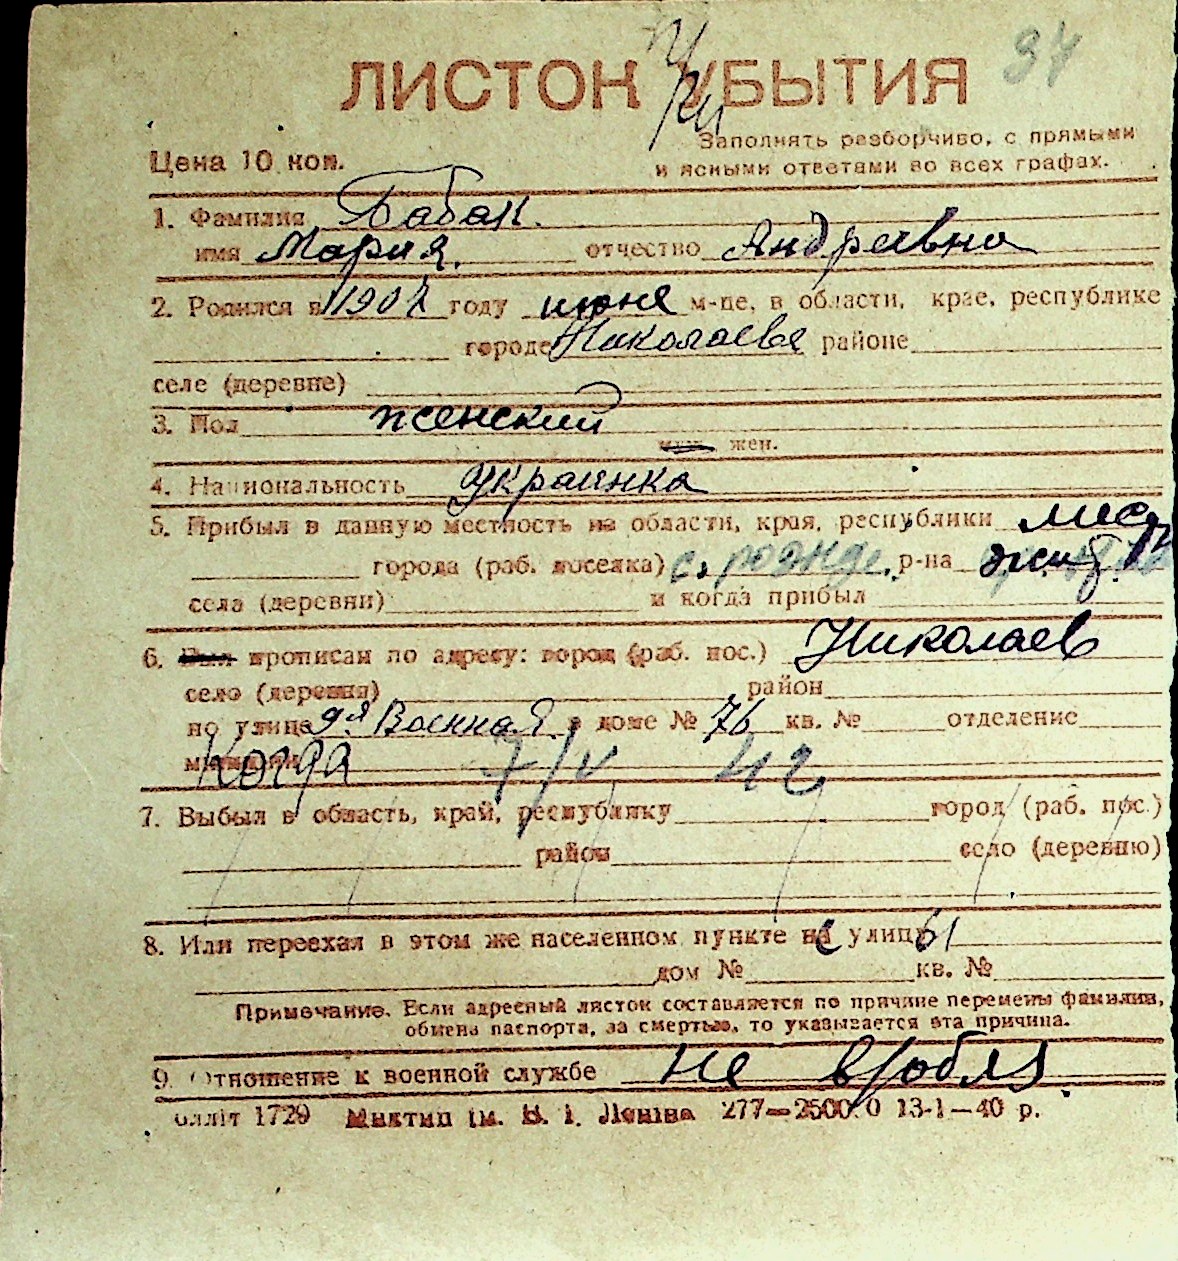 94
ЛИСТОК УБЫТИЯ
Заполнять разборчиво, с прямыми
Цена 10 коп. и ясными ответами во всех графах.
1. Фамилия Бабак.
имя Мария. отчество Андреевна
2. Родился в 1907 году июне м-це, в области, крае, республике
городе Николаеве районе
селе (деревне)
3. Пол женский
муж. жен.
4. Национальность Украинка
5. Прибыл в данную местность из области, края, республики мес.
города (раб. поселка) с рожде. р-на жит.
села (деревни) и когда прибыл
6. Был прописан по адресу: город (раб. пос.) Николаев
село (деревня) район
по улице 9я Военная в доме № 76 кв. № отделение
милиции Когда 7/V 42
7. Выбыл в область, край, республику город (раб. пос.)
район село (деревню)
8. Или переехал в этом же населенном пункте на улицу
дом № кв. №
Примечание. Если адресный листок составляется по причине перемены фамилии,
обмена паспорта, за смертью, то указывается эта причина.
9. Отношение к военной службе не в/обяз
Олліт 1729 Миктип ім. В. І. Леніна 277—2500.0 13-1—40 р.